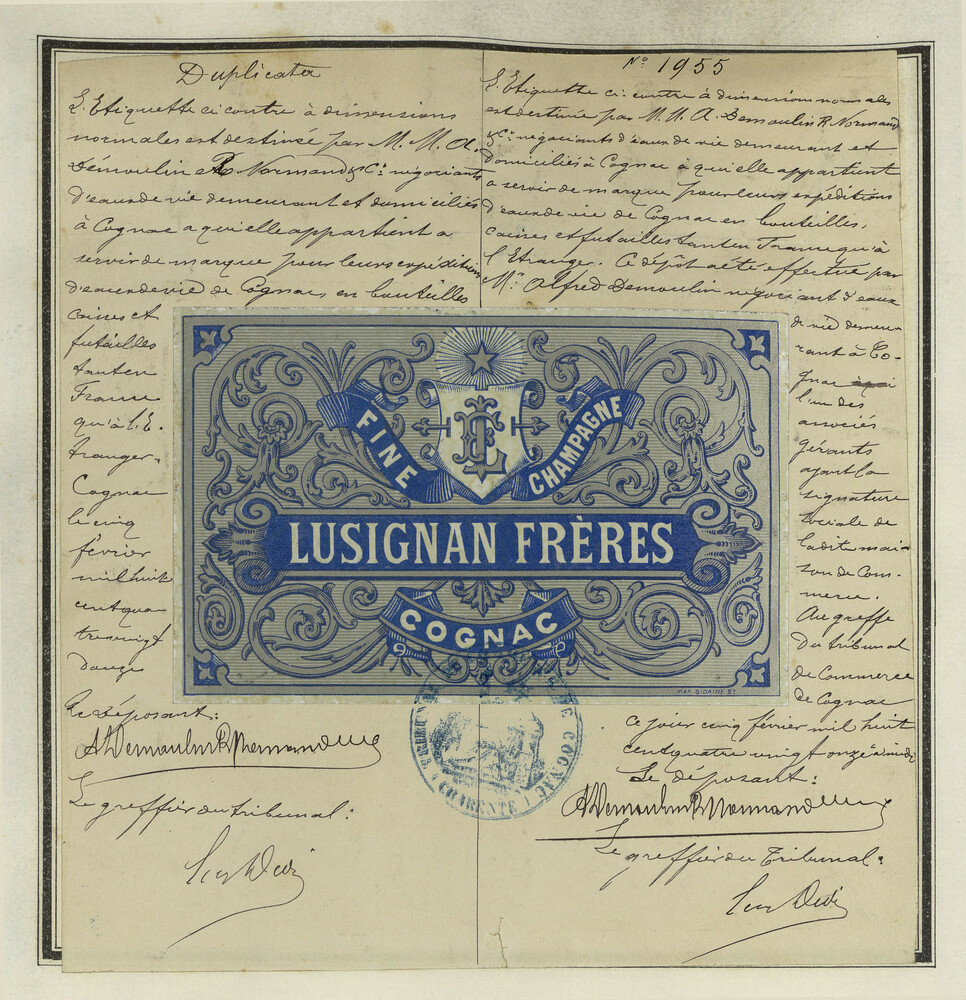 Duplicata
L'Etiquette ci contre à dimensions
normales est destinée par M. M. A.
Démoulin R. Normand & Cie négociants
d'eaux de vie demeurant et domiciliés
à Cognac a qui elle appartient a
servir de marque pour leurs expéditions
d'eaux de vie de Cognac en bouteilles
caisses et
futailles
tant en
France
qu'à l'E-
tranger.
Cognac
le cinq
février
mil huit
cent qua
tre vingt
douze
Le déposant:
A Demoulin R Normand
Le greffier du tribunal:
No 1955
L'Etiquette ci-contre à dimensions normales
est destinée par M. M. A. Demoulin R. Normand
& Cie négociants d'eaux de vie demeurant et
domiciliés à Cognac à qui elle appartient
a servir de marque pour leurs expéditions
d'eaux de vie de Cognac en bouteilles,
caisses et futailles tant en France qu'à
l'Etranger. Ce dépôt a été effectué par
Mr. Alfred Demoulin négociant d'eaux
de vie demeu-
rant à Co-
gnac
l'un des
associés
gérants
ayant la
signature
sociale de
ladite mai-
son de Com-
merce.
Au greffe
du tribunal
de Commerce
de Cognac
ce jour cinq février mil huit
cent quatre vingt onze à midi
Le déposant:
A Demoulin R Normand
Le greffier du Tribunal:
FINE CHAMPAGNE
LUSIGNAN FRÈRES
COGNAC
MAX. SIDAINE Bx
COGNAC
(CHARENTE)